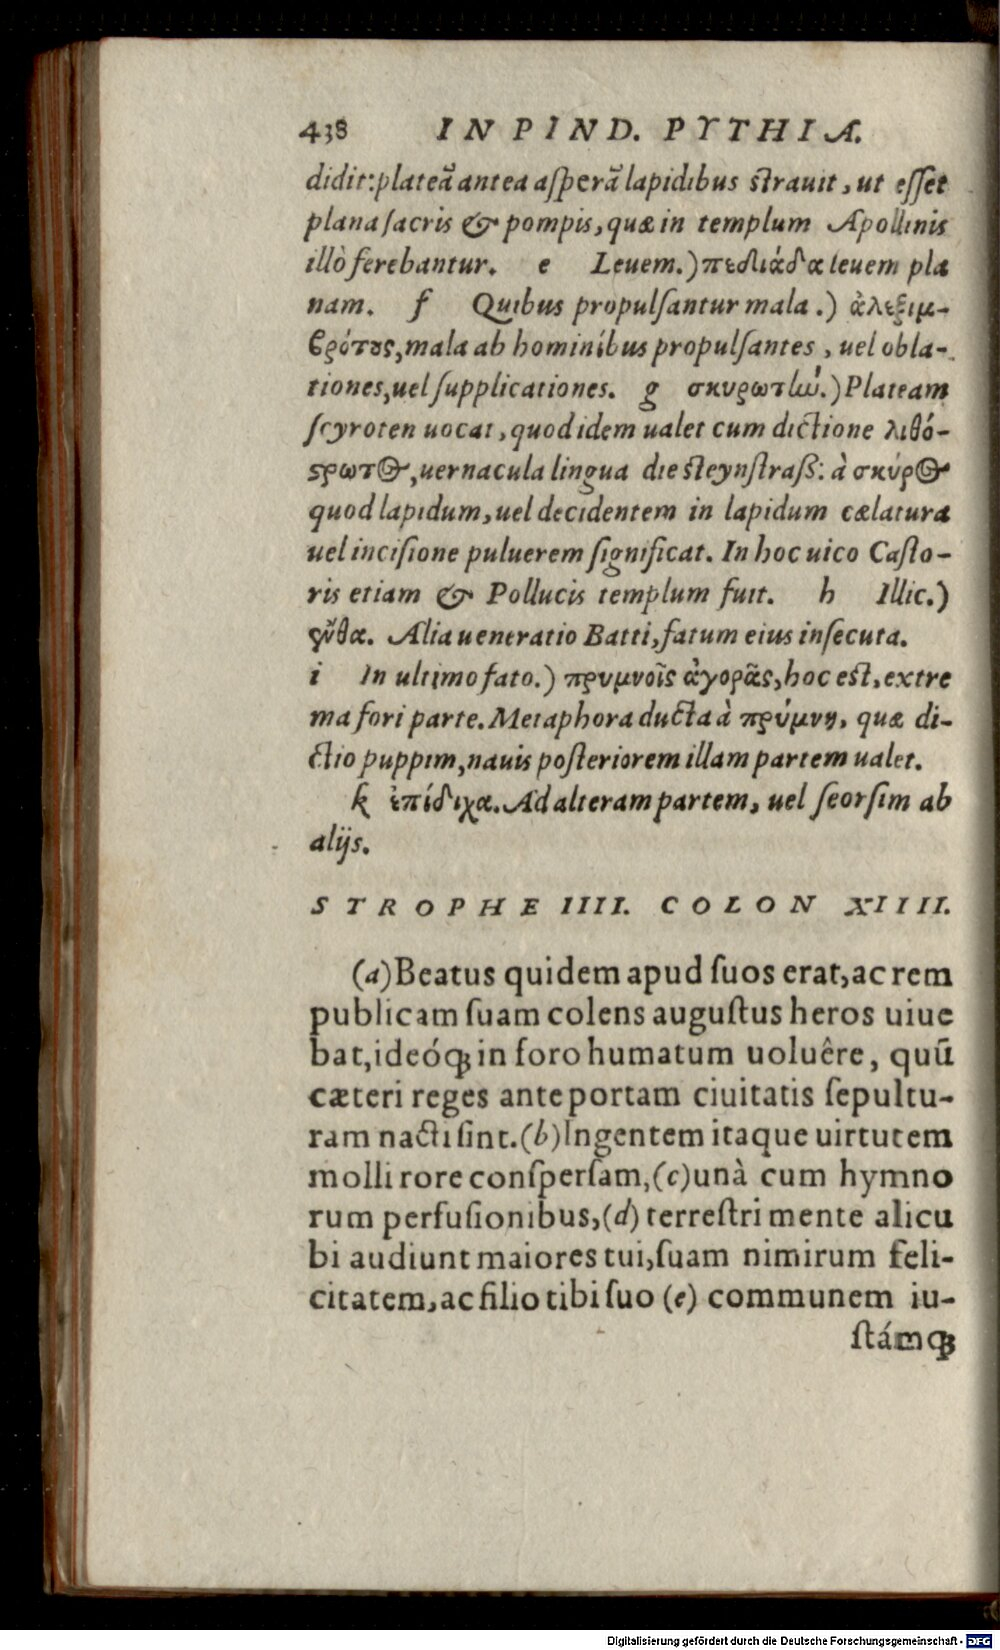 438 IN PIND. PYTHIA.
didit: plateã antea aſperã lapidibus ſtrauit, ut eſſet
plana ſacris & pompis, quæ in templum Apollinis
illò ferebantur. e Leuem.) πεδιάδα leuem pla
nam. f Quibus propulſantur mala.) ἀλεξιμ-
ϐρότους, mala ab hominíbus propulſantes, uel obla-
tiones, uel ſupplicationes. g σκυρωτὼ.) Plateam
ſcyroten uocat, quod idem ualet cum dictione λιθό-
ϛρωτος, uernacula lingua die ſteynſtraß: à σκύρος
quod lapidum, uel decidentem in lapidum cælatura
uel inciſione puluerem ſignificat. In hoc uico Caſto-
ris etiam & Pollucis templum fuit. h Illic.)
ἔνθα. Alia ueneratio Batti, fatum eius inſecuta.
i In ultimo fato.) πρυμνοῖς ἀγορᾶς, hoc eſt, extre
ma fori parte. Metaphora ducta à πρύμνη, quæ di-
ctio puppim, nauis poſteriorem illam partem ualet.
k ἐπίδιχα. Ad alteram partem, uel ſeorſim ab
alijs.
STROPHE IIII. COLON XIIII.
(a) Beatus quidem apud ſuos erat, ac rem
publicam ſuam colens auguſtus heros uiue
bat, ideóqꝫ in foro humatum uoluêre, quũ
cæteri reges ante portam ciuitatis ſepultu-
ram nacti ſint. (b) Ingentem itaque uirtutem
molli rore conſperſam, (c) unà cum hymno
rum perfuſionibus, (d) terreſtri mente alicu
bi audiunt maiores tui, ſuam nimirum feli-
citatem, ac filio tibi ſuo (e) communem iu-
ſtámqꝫ
Digitalisierung gefördert durch die Deutsche Forschungsgemeinschaft - DFG